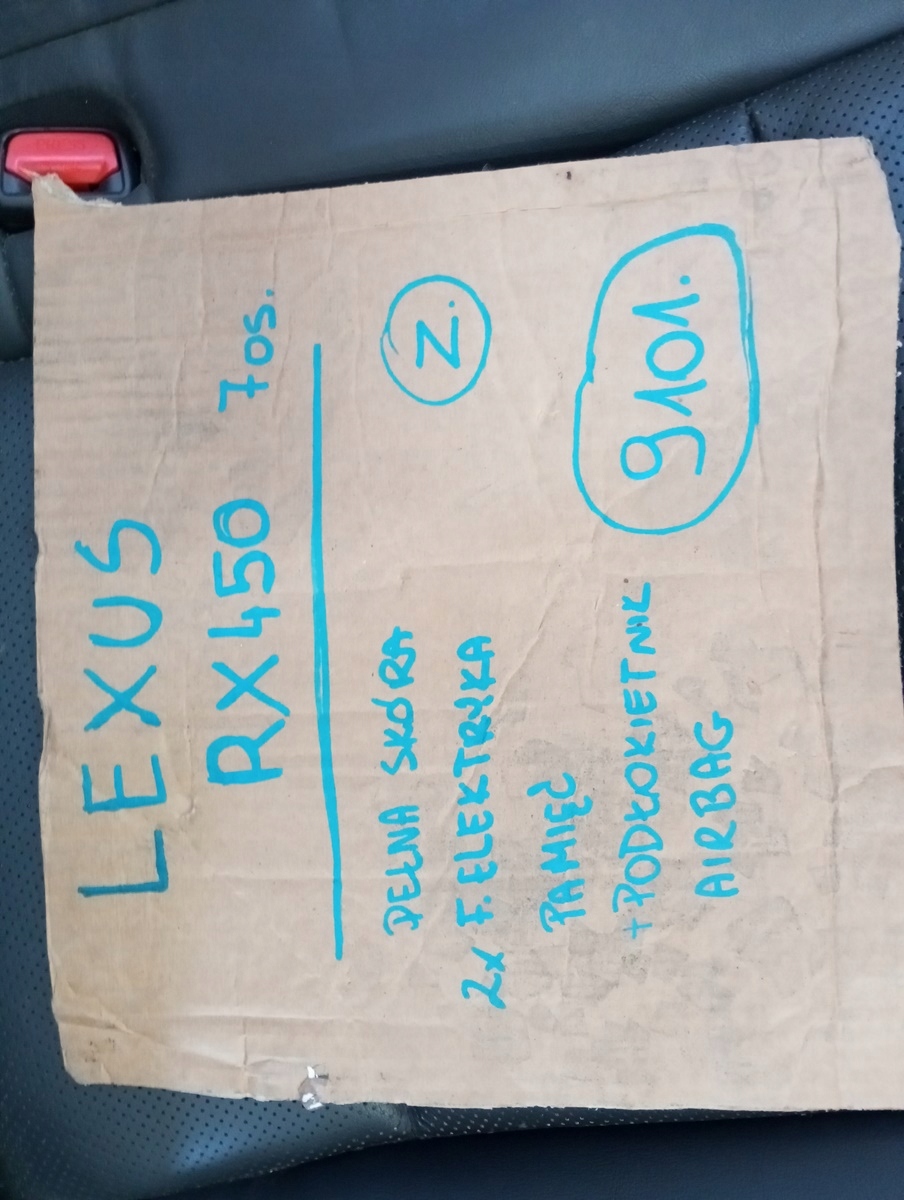 LEXUS
RX450 7os.
PEŁNA SKÓRA Z.
2x F. ELEKTRYKA
PAMIĘĆ
+ PODŁOKIETNIK 9101.
AIRBAG